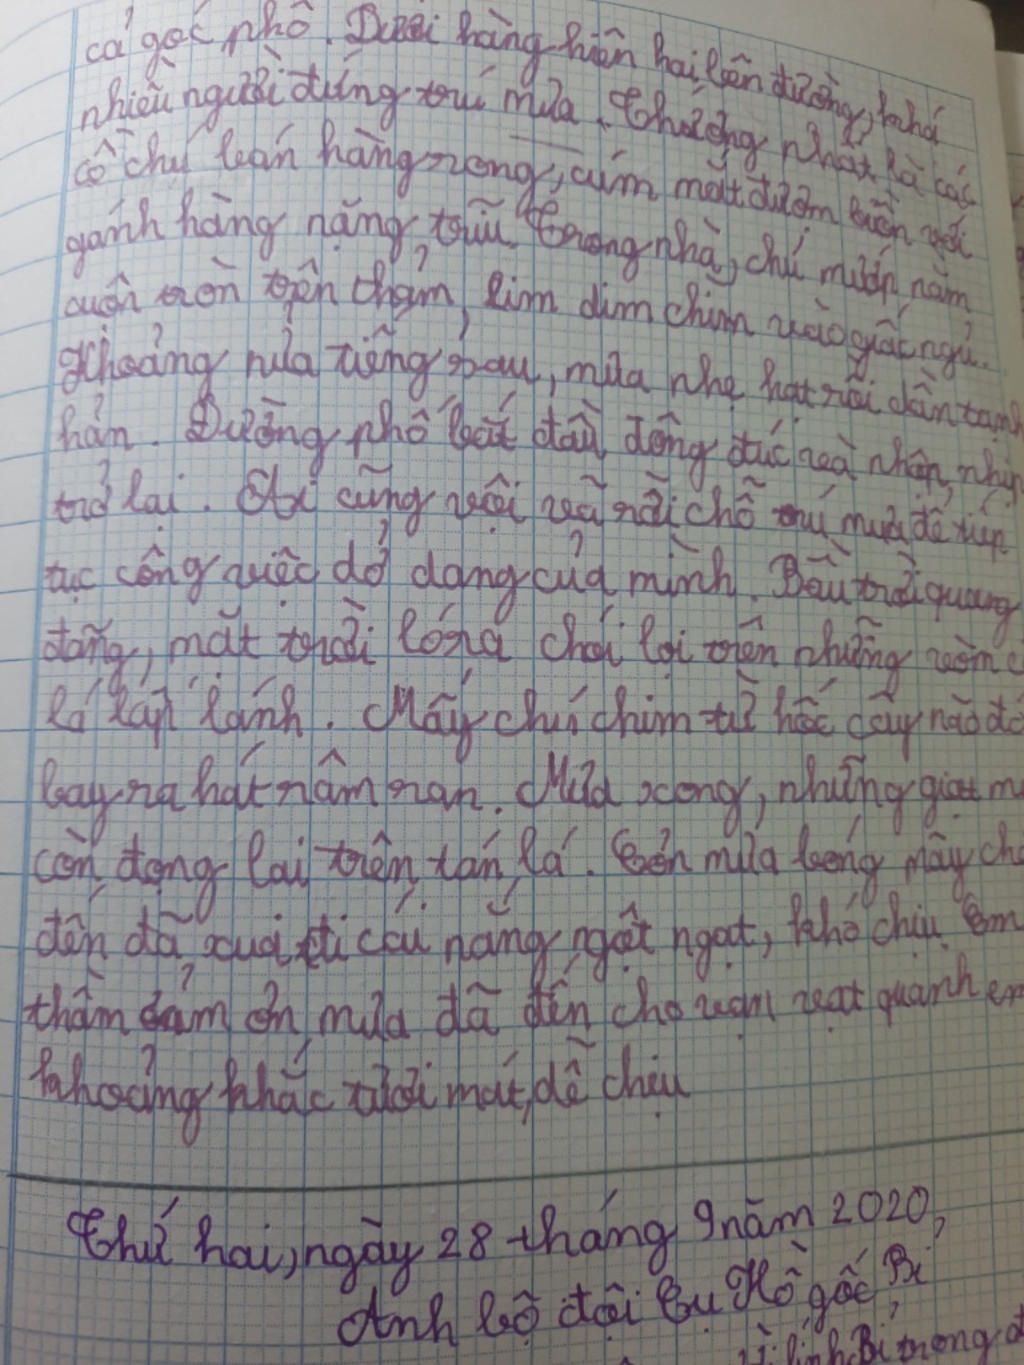 cả góc phố. Dưới hàng hiên hai bên đường, khá
nhiều người đứng trú mưa. Thương nhất là các
cô chú bán hàng rong, cúm mắt đượm buồn với
gánh hàng nặng trĩu. Trong nhà, chú mướp nằm
cuộn tròn trên thảm, lim dim chìm vào giấc ngủ.
Khoảng nửa tiếng sau, mưa nhẹ hạt rồi dần tạnh
hẳn. Đường phố bắt đầu đông đúc và nhộn nhịp
trở lại. Ai cũng vội vã rời chỗ trú mưa để tiếp
tục công việc dở dang của mình. Bầu trời quang
đãng, mặt trời lóng chói lọi trên những vòm
lá lấp lánh. Mấy chú chim từ hốc cây nào đó
bay ra hát râm ran. Mưa xong, những giọt
còn đọng lại trên tán lá. Cơn mưa bóng mây
đến đã xua đi cái nắng ngột ngạt, khó chịu. Em
thầm cảm ơn mưa đã đến cho vạn vật quanh em
khoảng khắc tươi mát, dễ chịu
Thứ hai, ngày 28 tháng 9 năm 2020,
Anh bộ đội Cụ Hồ gốc Bỉ
Bỉ trong